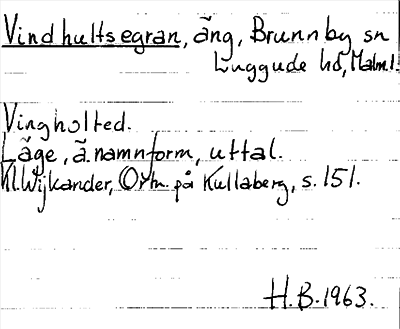 Vindhultsegran, äng, Brunnby sn
Luggude hd, Malm l.
Vingholted.
Läge, ä. namnform, uttal.
Kl. Wijkander, Ortn. på Kullaberg, s. 151.
H.B. 1963.